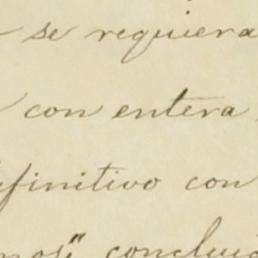 se requiera
con entera
efinitivo con
mos", concluia